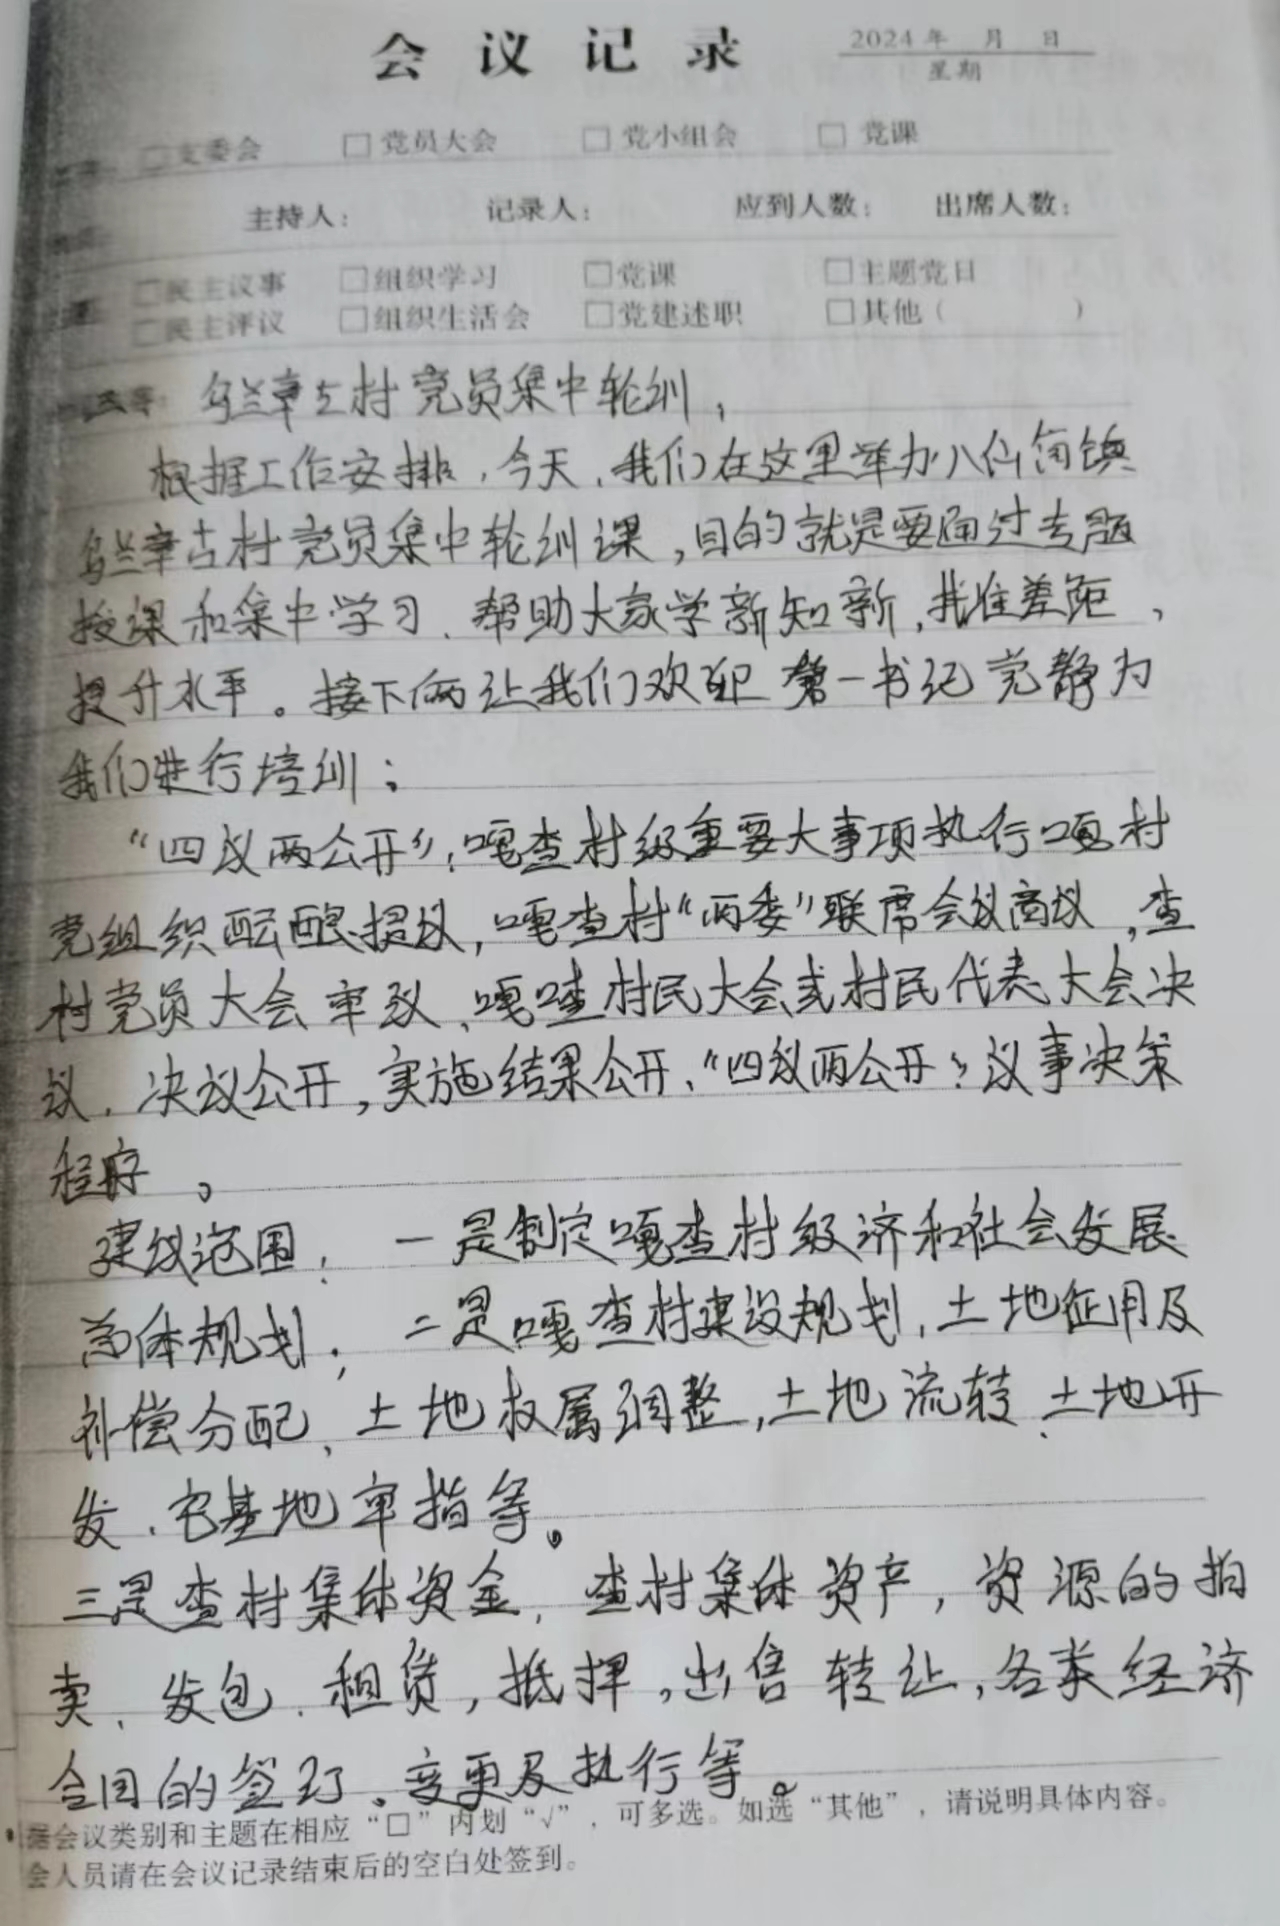 会议记录
2024年 月 日
星期
□支委会 □党员大会 □党小组会 □党课
主持人： 记录人： 应到人数： 出席人数：
□民主议事 □组织学习 □党课 □主题党日
□民主评议 □组织生活会 □党建述职 □其他（ ）
乌兰章古村党员集中轮训，
根据工作安排，今天，我们在这里举办八仙筒镇
乌兰章古村党员集中轮训课，目的就是要通过专题
授课和集中学习、帮助大家学新知新，找准差距、
提升水平。接下面让我们欢迎第一书记党静为
我们进行培训：
“四议两公开”，嘎查村级重要大事项执行嘎村
党组织酝酿提议，嘎查村“两委”联席会议商议，查
村党员大会审议、嘎查村民大会或村民代表大会决
议、决议公开，实施结果公开、“四议两公开”议事决策
程序。
建议范围：一是制定嘎查村级济和社会发展
总体规划；二是嘎查村建设规划，土地征用及
补偿分配、土地权属调整，土地流转、土地开
发、宅基地审指等。
三是查村集体资金，查村集体资产，资源的拍
卖、发包、租赁，抵押，出售转让，各类经济
合同的签订、变更及执行等。
据会议类别和主题在相应“□”内划“√”，可多选。如选“其他”，请说明具体内容。
会人员请在会议记录结束后的空白处签到。